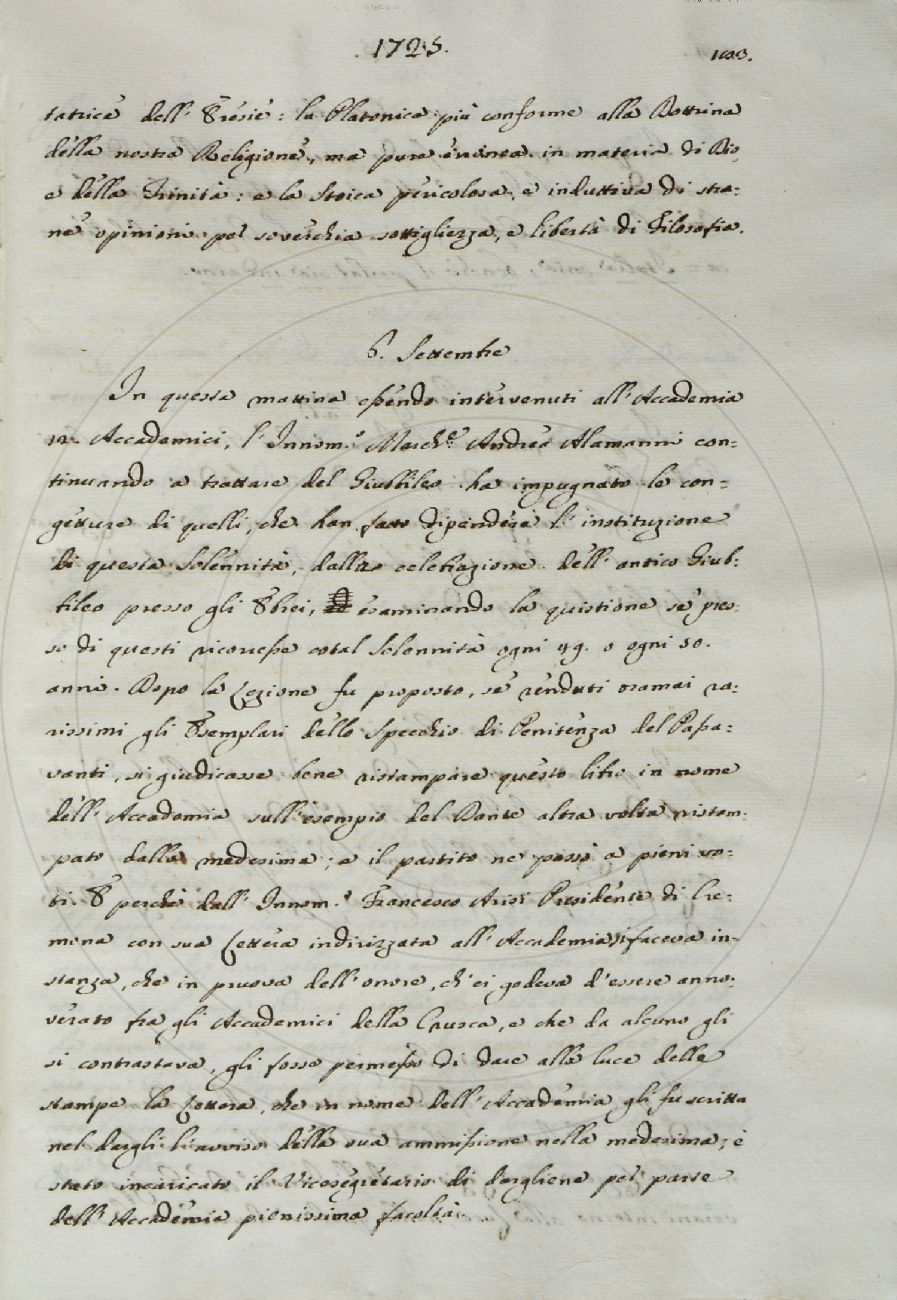 1725.
103.
tatrice dell' Eresie: la Platonica più conforme alla Dottrina
della nostra Religione, ma pure erronea in materia di Dio,
e della Trinità: e la Stoica pericolosa, e induttiva di stra=
ne opinioni per soverchia sottigliezza, e libertà di Filosofia.
6. Settembre
In questa mattina essendo intervenuti all' Accademia
12. Accademici, l' Innom.º March.e Andrea Alamanni con=
tinuando a trattare del Giubbileo ha impugnato le con=
getture di quelli, che han fatto dipendere l' instituzione
di questa Solennità, dalla celebrazione dell' antico Giub=
bileo presso gli Ebrei, esaminando la quistione se pres=
so di questi ricorresse cotal Solennità ogni 49. o ogni 50.
anni. Dopo la Lezione fu proposto, se renduti oramai ra=
rissimi gli Esemplari dello Specchio di Penitenza del Passa=
vanti, si giudicasse bene ristampare questo libro in nome
dell' Accademia sull' esempio del Dante altra volta ristam=
pato dalla medesima; e il partito ne passò a pieni vo=
ti. E perchè dall' Innom.º Francesco Arisi Presidente di Cre=
mona con sua Lettera indirizzata all' Accademia si faceva in=
stanza, che in pruova dell' onore, ch' ei godeva d' essere anno=
verato fra gli Accademici della Crusca, e che da alcuno gli
si contrastava, gli fosse permesso di dare alla luce delle
stampe la Lettera, che in nome dell' Accademia gli fu scritta
nel dargli l' avviso della sua ammissione nella medesima; è
stato incaricato il Vicesegretario di dargliene per parte
dell' Accademia pienissima facoltà.